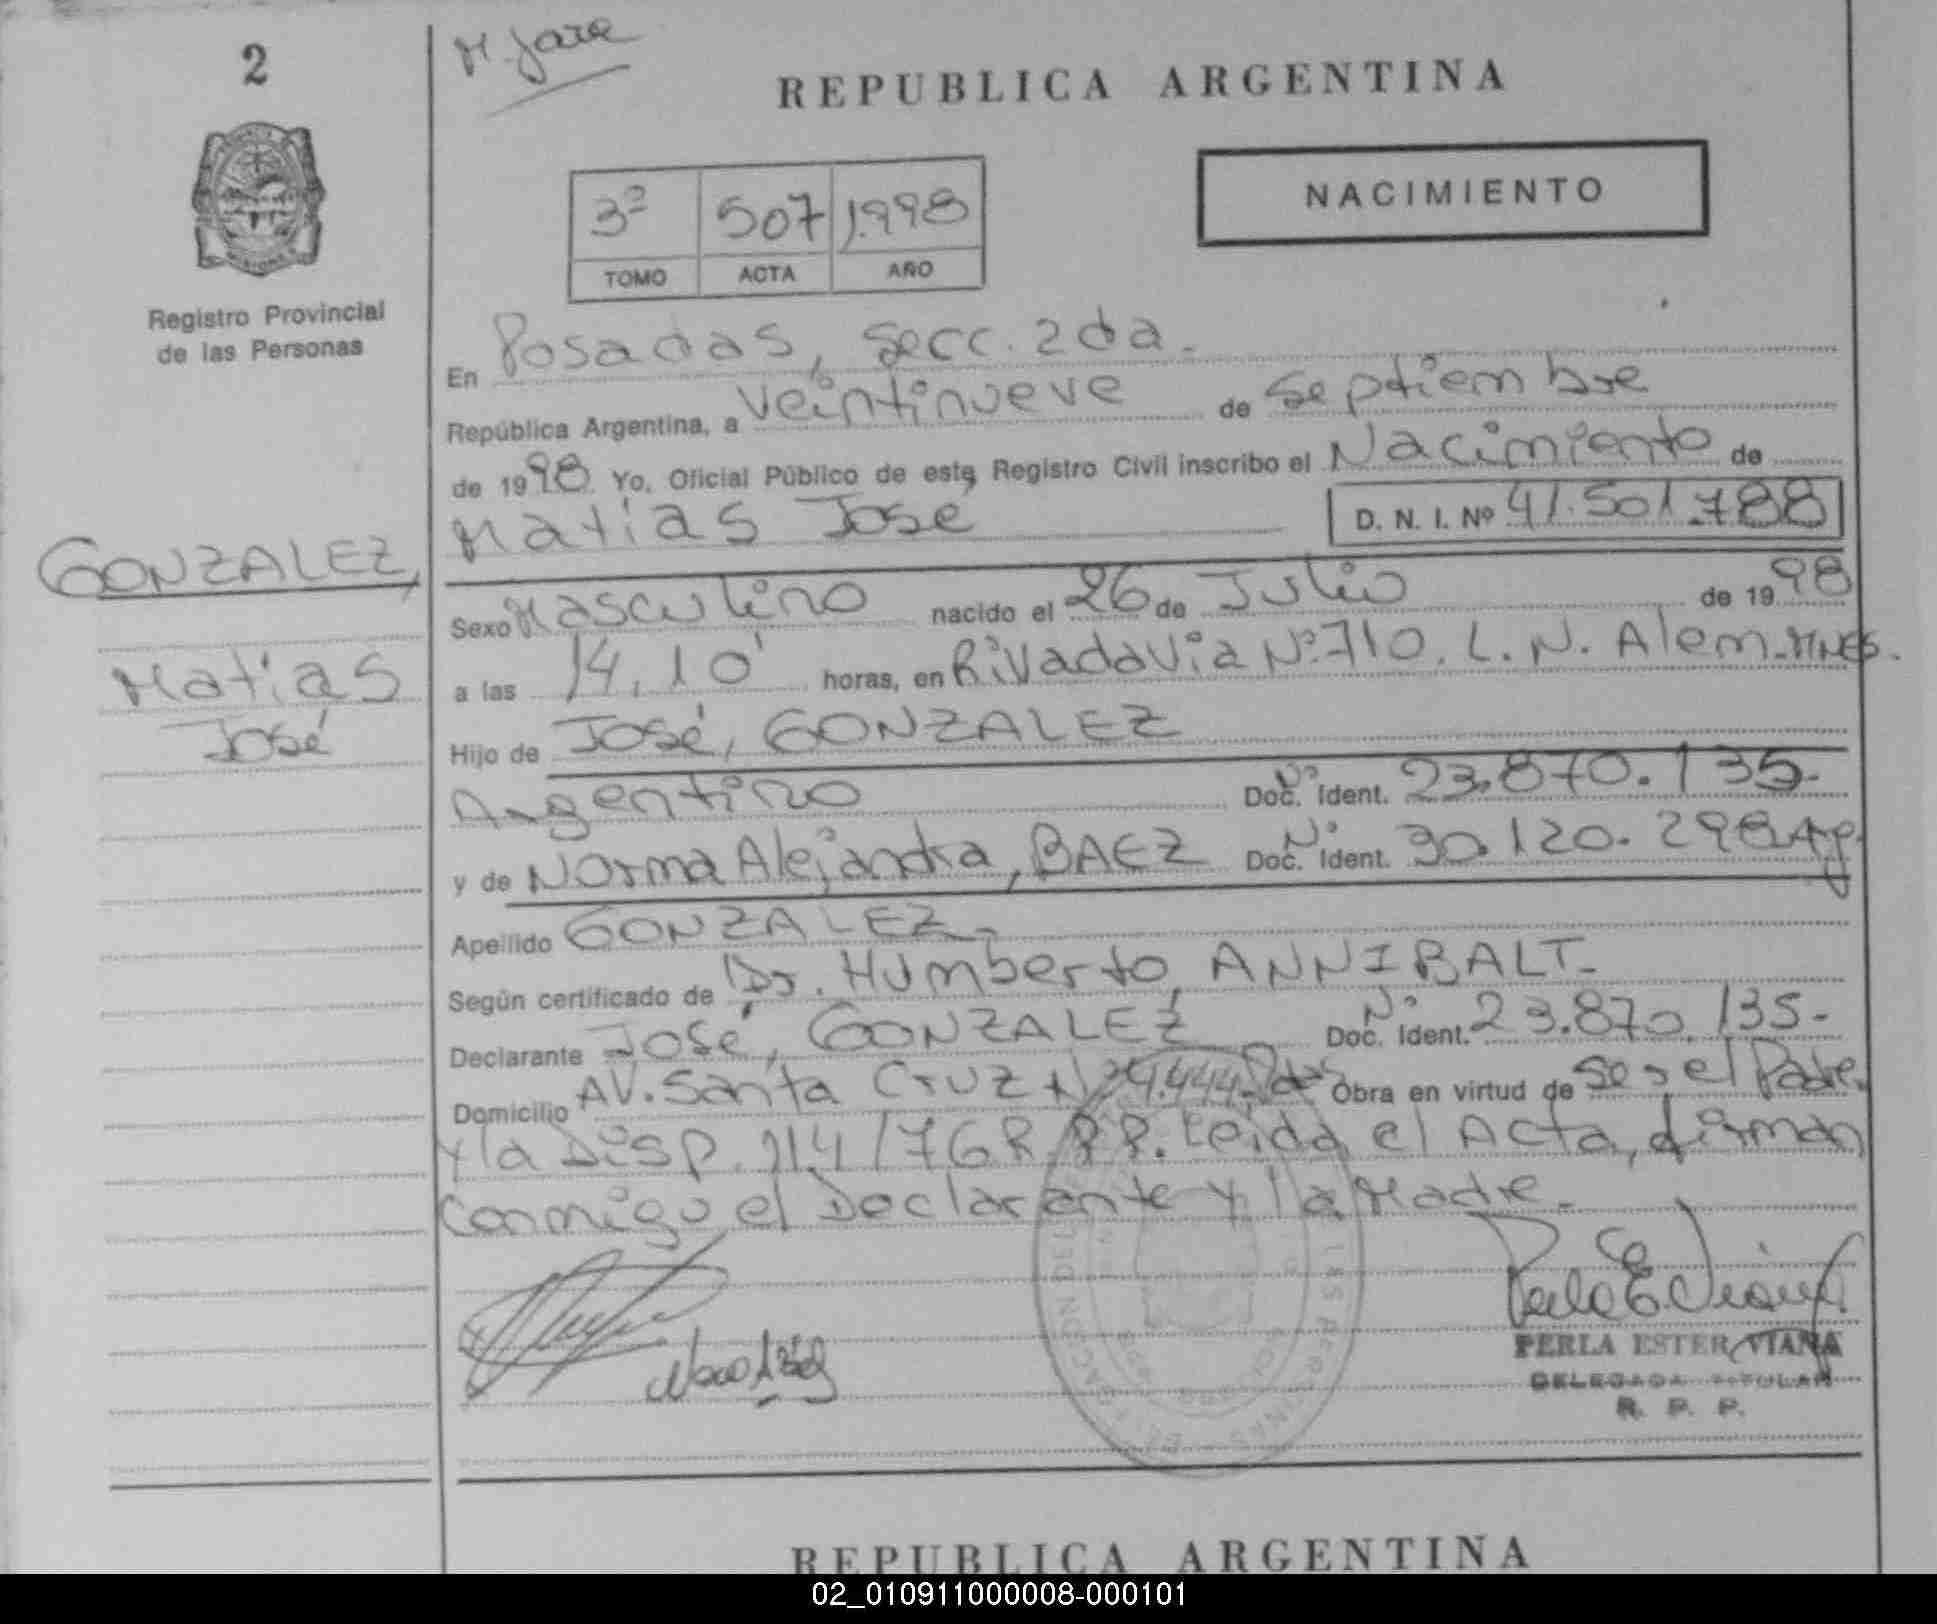 2
REPUBLICA ARGENTINA
NACIMIENTO
3ª 507 1.998
TOMO ACTA AÑO
Registro Provincial
de las Personas
En Posadas, Secc. 2da.
República Argentina, a veintinueve de septiembre
de 1998 Yo, Oficial Público de este Registro Civil inscribo el Nacimiento de
Matías José D. N. I. Nº 41.501.788
GONZALEZ,
Matias
José
Sexo Masculino nacido el 26 de Julio de 1998
a las 14,10' horas, en Rivadavia Nº 710. L. N. Alem-MNES.
Hijo de José, GONZALEZ
Argentino Nº Doc. Ident. 23.870.135-
y de Norma Alejandra, BAEZ Nº Doc. Ident. 30.120.298 Arg.
Apellido GONZALEZ.-
Según certificado de Dr. Humberto, ANNIBALT.-
Declarante José, GONZALEZ Nº Doc. Ident. 23.870.135-
Domicilio AV. Santa Cruz Nº 9.444-Pdas Obra en virtud de ser el Padre.
y la Disp. 114/76 R.P.P. Leída el Acta, firman
conmigo el Declarante y la Madre.-
PERLA ESTER VIANA
DELEGADA TITULAR
R. P. P.
REPUBLICA ARGENTINA
02_010911000008-000101